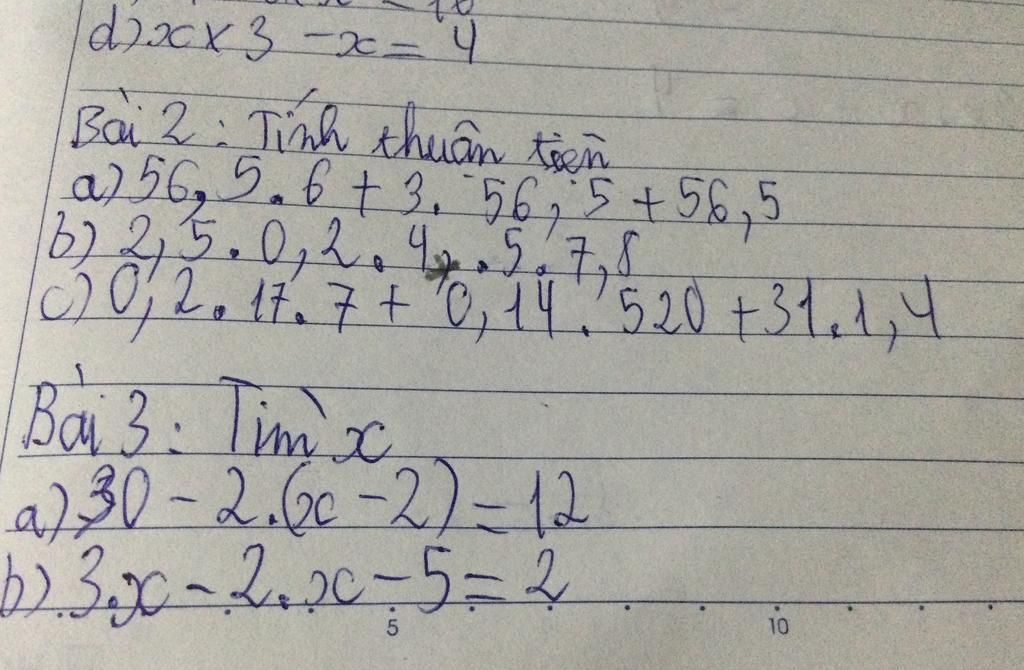 d) x × 3 - x = 4
Bài 2 : Tính thuận tiện
a) 56,5 . 6 + 3 . 56,5 + 56,5
b) 2,5 . 0,2 . 4 . 5 . 7,8
c) 0,2 . 17 . 7 + 0,14 . 520 + 31 . 1,4
Bài 3 : Tìm x
a) 30 - 2.(x - 2) = 12
b) 3.x - 2.x - 5 = 2
5 10